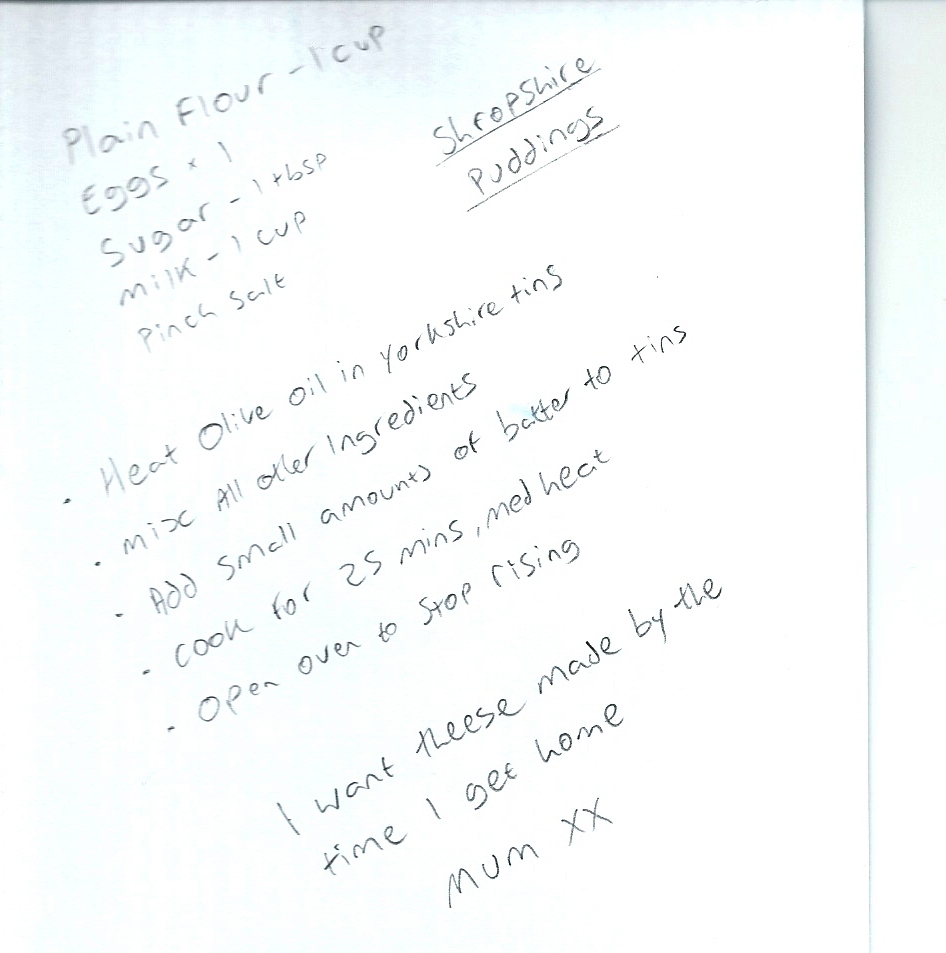 Shropshire
Puddings
Plain Flour - 1 cup
Eggs x 1
Sugar - 1 tbsp
Milk - 1 cup
Pinch Salt
• Heat Olive oil in yorkshire tins
• Mix All other Ingredients
• Add small amounts of batter to tins
• Cook for 25 mins, med heat
• Open oven to stop rising
I want theese made by the
time I get home
Mum XX